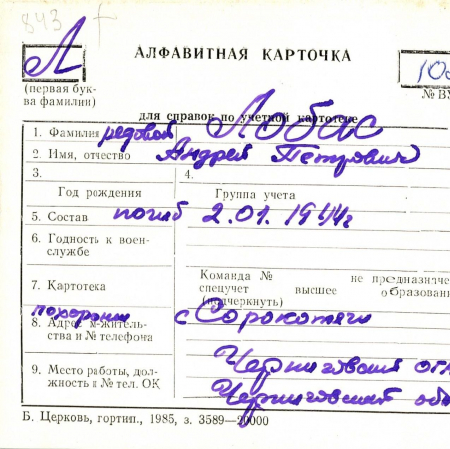 843
Л
АЛФАВИТНАЯ КАРТОЧКА
10
(первая бук-
ва фамилии)
№ В
для справок по учетной картотеке
1. Фамилия рядовой Лобас
2. Имя, отчество Андрей Петрович
3.
4.
Год рождения
Группа учета
5. Состав погиб 2.01.1944г
6. Годность к воен-
службе
7. Картотека
Команда № не предназначе
спецучет высшее образован
(подчеркнуть)
похоронен с Сорокотяги
8. Адрес м-житель-
ства и № телефона
9. Место работы, дол-
жность и № тел. ОК
Черниговская
Черниговская обл
Б. Церковь, гортип., 1985, з. 3589—20000